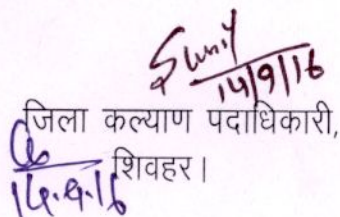 Sunil
14/9/16
जिला कल्याण पदाधिकारी,
शिवहर।
14.9.16